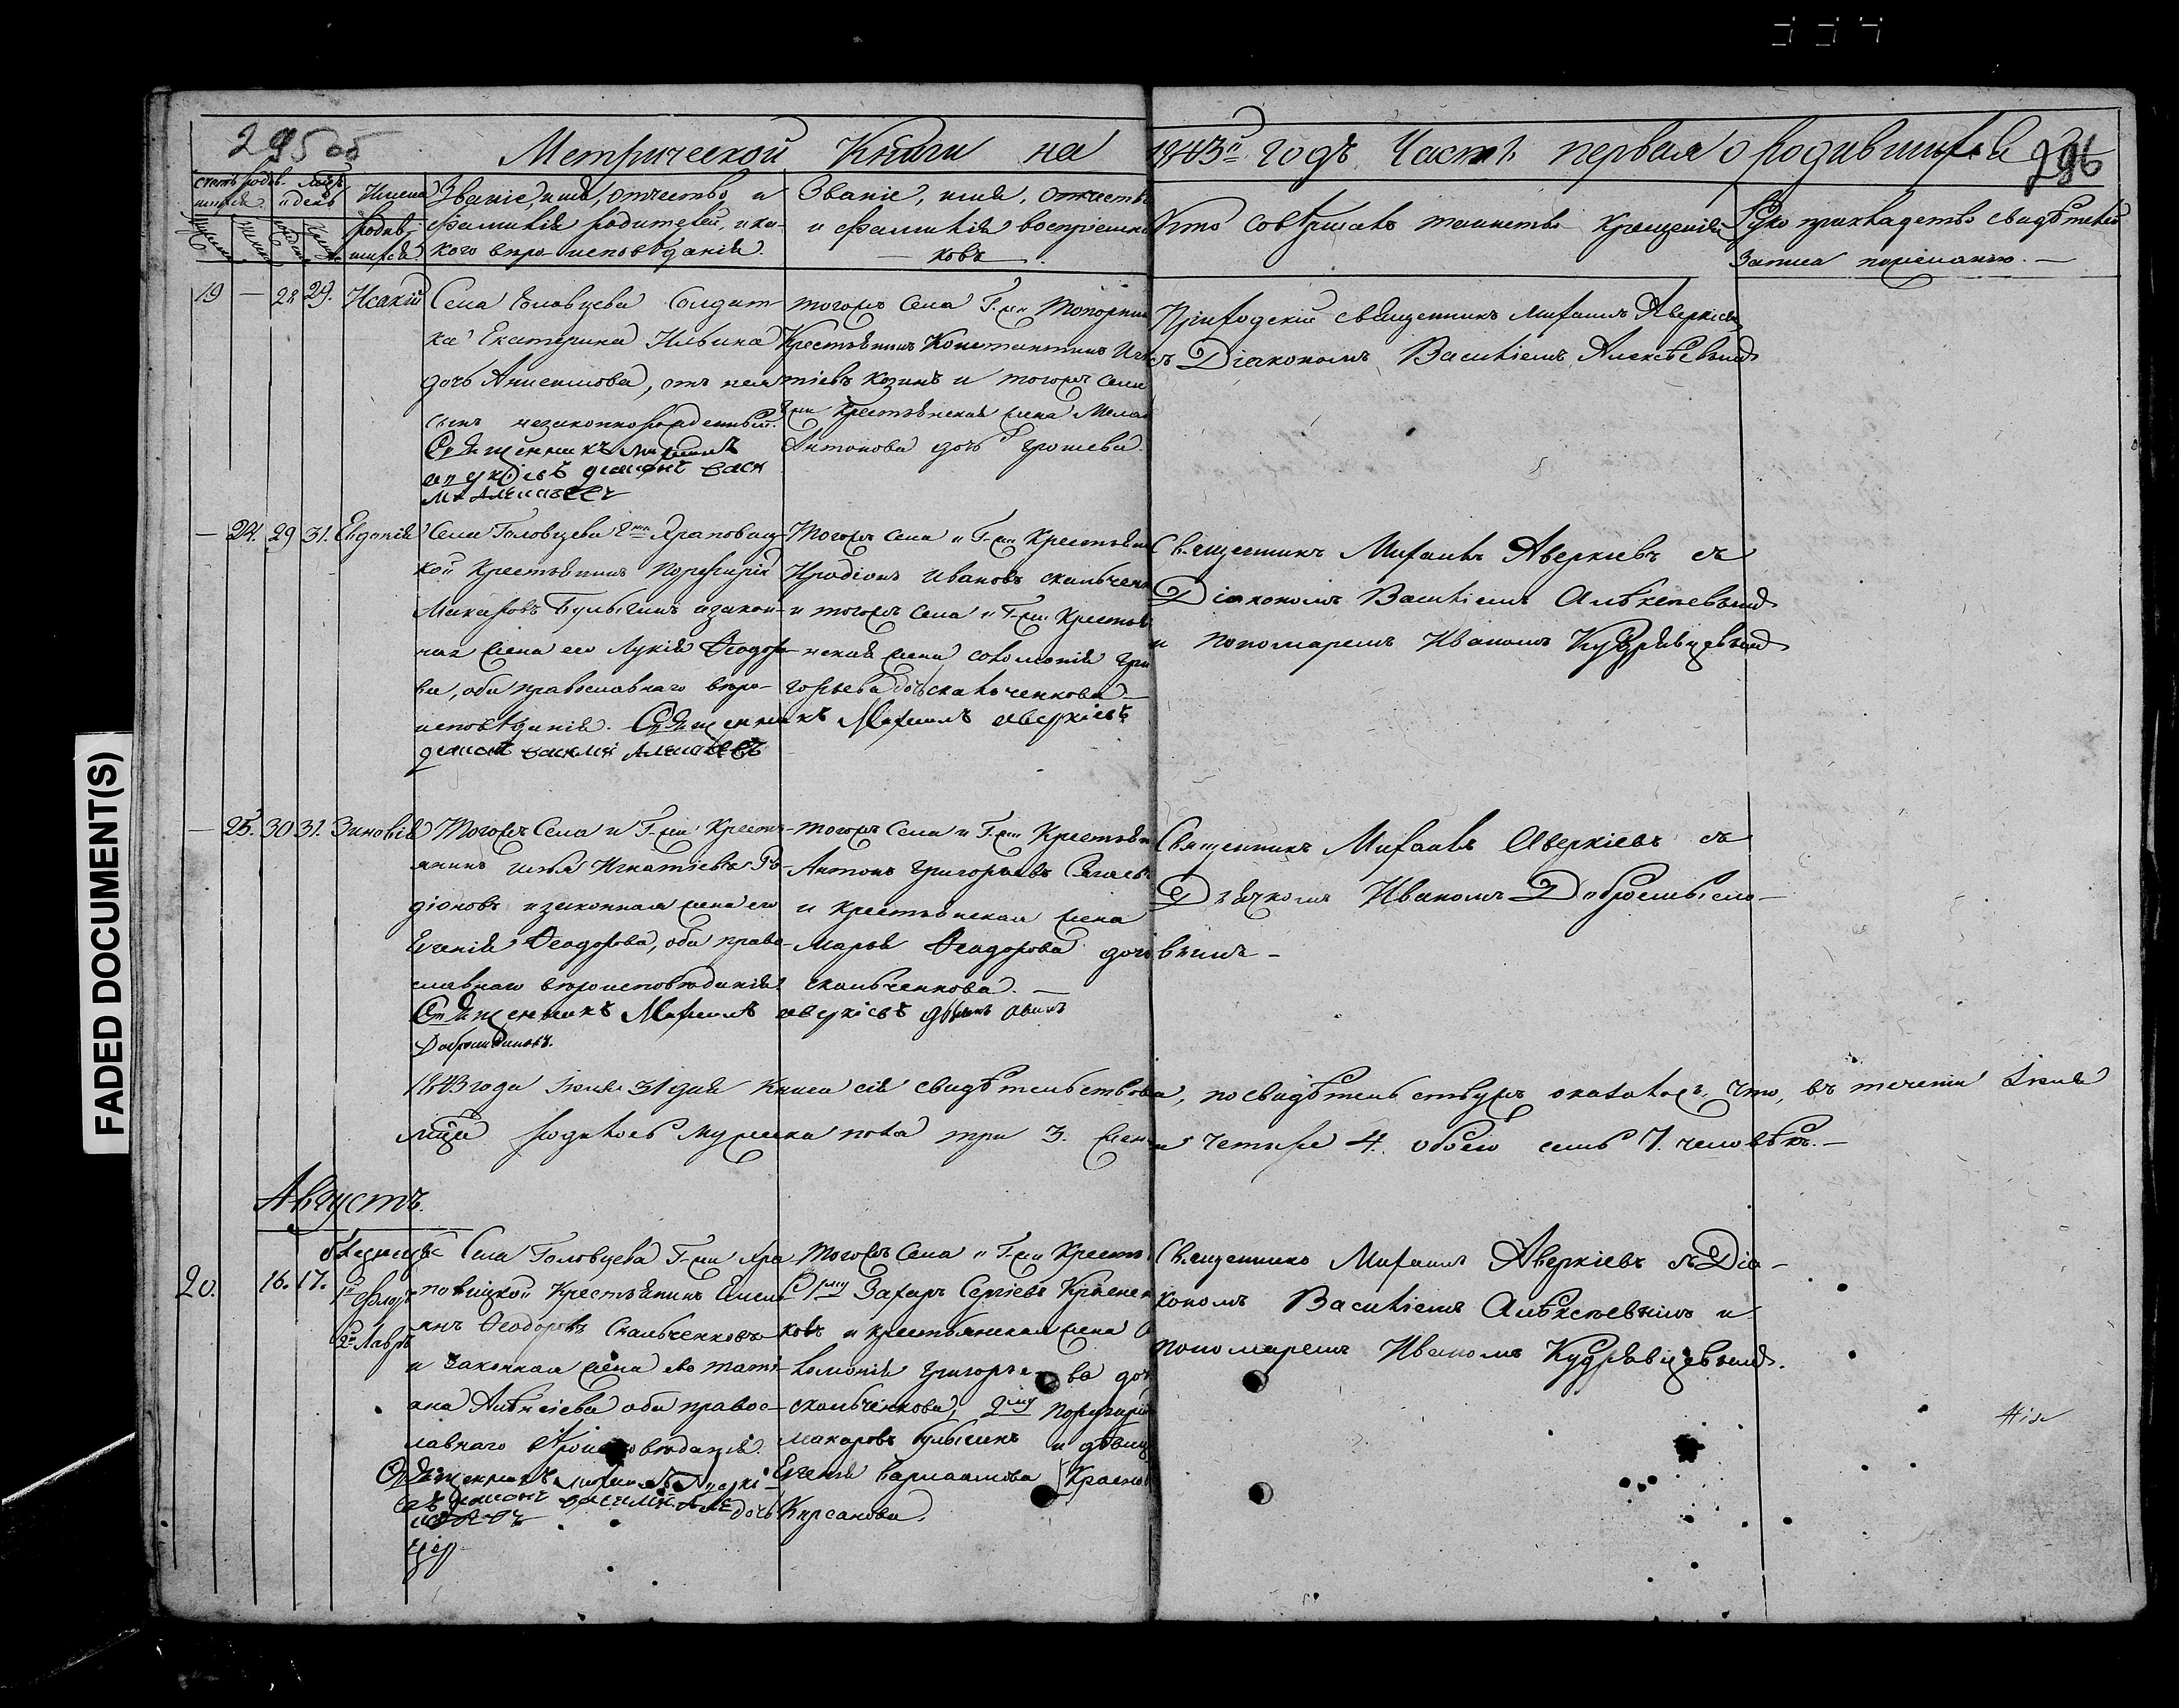 295 об
Метрической Книги на 1843й годъ Часть первая о родившихся 296
счетъ родив- мѣсъ
шихся и день
Имена родив- шихся.
Званіе, имя, отчество и
фамилія родителей, и ка-
кого вѣро-исповѣданія.
Званіе, имя, отчеств
и фамилія воспріемни
ковъ
Кто совершалъ таинство крещенія
Рукоприкладство свидѣтелей
записи по желанію.
19 — 28 29. Исакій
Села Головцева Солдат-
ка Екатерина Ильина
дочь Анисимова, отъ нея
сынъ незаконнорожденный.
Священникъ Михаилъ
Аверкіевъ діаконъ Васи
лій Алексѣевъ
тогожъ Села Г-жи
Крестьянинъ Константинъ
тіевъ Козинъ и тогожъ села
Г-жи Крестьянская жена
Антонова дочь Грошева.
Приходскій священникъ Михаилъ Аверкіевъ
съ Діакономъ Василіемъ Алексѣевымъ
— 24. 29 31. Евдокія
Села Головцева Г-жи Храповиц-
кой Крестьянинъ Порфирій
Макаровъ Булыгинъ и закон-
ная жена его Лукія Ѳеодоро-
ва, оба православнаго вѣро-
исповѣданія. Священникъ Михаилъ Аверкіевъ
діаконъ Василій Алексѣевъ
Тогожъ Села и Г-жи Крестьян
Иродіонъ Ивановъ Скальченк
и тогожъ Села и Г-жи Крестья
нская жена Соломонія Гри
горьева дочь Скальченкова
Священникъ Михаилъ Аверкіевъ съ
Діакономъ Василіемъ Алѣксѣевымъ
и пономаремъ Иваномъ Кудрявцевымъ
— 25. 30 31. Зиновія
Тогожъ Села и Г-жи Кресть-
янинъ Илья Игнатіевъ Ро-
діоновъ и законная жена его
Евгенія Ѳеодорова, оба право-
славнаго вѣроисповѣданія.
Священникъ Михаилъ Аверкіевъ
Добросмысловъ.
тогожъ Села и Г-жи Крестьян
Антонъ Григорьевъ
и крестьянская жена
Марья Ѳеодорова дочь
Скальченкова.
Священникъ Михаилъ Аверкіевъ съ
Дьячкомъ Иваномъ Добросмысло-
вымъ -
1843 года Іюля 31 дня Книга сія свидѣтельствована, по свидѣтельству жъ оказалось, что, въ теченіи Іюля
мѣсяца родилось мужеска пола три 3. женска четыре 4. обоего семь 7. человѣкъ.
Августъ.
20. 16. 17.
близнецы
1й Флоръ
2й Лавръ
Села Головцева Г-жи Хра
повицкой Крестьянинъ Емель
янъ Ѳеодоровъ Скальченковъ
и законная жена его Тати-
ана Алѣксіева оба правос-
лавнаго вѣроисповѣданія.
Священникъ Михаилъ Аверкі-
евъ діаконъ Василій Але
ксѣевъ
Тогожъ Села и Г-жи Кресть
1му Захаръ Сергіевъ
ковъ и крестьянская жена Со
ломонія Григорьева дочь
Скальченкова, 2му Порфирій
Макаровъ Булыгинъ и дѣвиц
Евгенія Варлаамова
дочь Кирсанова.
Священникъ Михаилъ Аверкіевъ съ Діа-
кономъ Василіемъ Алѣксѣевымъ и
пономаремъ Иваномъ Кудрявцевымъ.
FADED DOCUMENT(S)